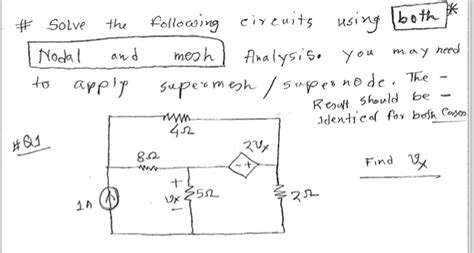 # Solve the following circuits using both *
Nodal and mesh Analysis. You may need
to apply supermesh / supernode. The -
Result should be -
Identical for both Cases
#Q1
4Ω
8Ω
2Vx
- +
Find Vx
+
Vx
-
5Ω
2Ω
1A